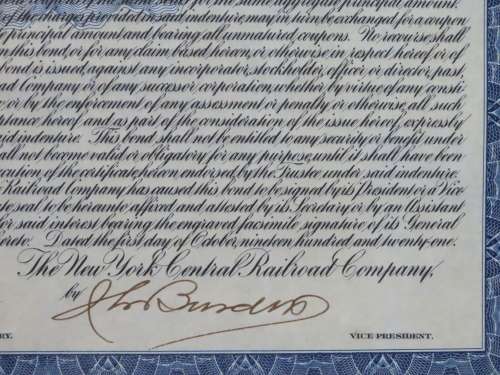 of the charges provided in said indenture may in turn be exchanged for a coupon
principal amount and bearing all unmatured coupons. No recourse shall
on this bond, or for any claim based hereon, or otherwise in respect hereof or of
bond is issued, against any incorporator, stockholder, officer or director, past,
ad Company or of any successor corporation, whether by virtue of any consti-
or by the enforcement of any assessment or penalty or otherwise, all such
ptance hereof and as part of the consideration of the issue hereof, expressly
id indenture. This bond shall not be entitled to any security or benefit under
all not become valid or obligatory for any purpose, until it shall have been
cution of the certificate hereon endorsed by the Trustee under said indenture.
Railroad Company has caused this bond to be signed by its President or a Vice
te seal to be hereunto affixed and attested by its Secretary or by an Assistant
or said interest bearing the engraved facsimile signature of its General
ereto. Dated the first day of October, nineteen hundred and twenty-one.
The New York Central Railroad Company,
by
RY.
VICE PRESIDENT.